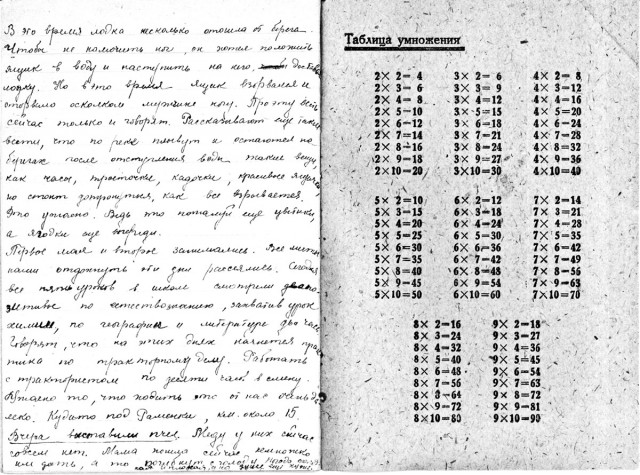 В это время лодка несколько отошла от берега.
Чтобы не намочить ног, он хотел положить
ящик в воду и наступить на него
лодку. Но в это время ящик взорвался и
оторвало осколком мужчине ногу. Про эту
сейчас только и говорят. Рассказывают еще
вести, что по реке плывут и остаются на
берегах после отступления воды такие вещи,
как часы, тросточки, кадочки, красивые ящички,
но стоит дотронуться, как все взрывается.
Это ужасно. Ведь это пожалуй еще цветики,
а ягодки еще впереди.
Первое мая и второе занимались. Все
наши отдохнуть эти дни рассеялись. Сегодня
все пять уроков в школе смотрели
по естествознанию, захватив урок
химии, по географии и литературе два часа
Говорят, что на этих днях начнется прак
тика по тракторному делу. Работать
с трактористом по десяти часов в смену.
то, что ходить это от нас очень да
леко. Куда-то под Раменки, км. около 15.
Вчера выставили пчел. Меду у них сейчас
совсем нет. Мама хочет сейчас немножко
им дать, а то
Таблица умножения
2× 2= 4 3× 2= 6 4× 2= 8
2× 3= 6 3× 3= 9 4× 3=12
2× 4= 8 3× 4=12 4× 4=16
2× 5=10 3× 5=15 4× 5=20
2× 6=12 3× 6=18 4× 6=24
2× 7=14 3× 7=21 4× 7=28
2× 8=16 3× 8=24 4× 8=32
2× 9=18 3× 9=27 4× 9=36
2×10=20 3×10=30 4×10=40
5× 2=10 6× 2=12 7× 2=14
5× 3=15 6× 3=18 7× 3=21
5× 4=20 6× 4=24 7× 4=28
5× 5=25 6× 5=30 7× 5=35
5× 6=30 6× 6=36 7× 6=42
5× 7=35 6× 7=42 7× 7=49
5× 8=40 6× 8=48 7× 8=56
5× 9=45 6× 9=54 7× 9=63
5×10=50 6×10=60 7×10=70
8× 2=16 9× 2=18
8× 3=24 9× 3=27
8× 4=32 9× 4=36
8× 5=40 9× 5=45
8× 6=48 9× 6=54
8× 7=56 9× 7=63
8× 8=64 9× 8=72
8× 9=72 9× 9=81
8×10=80 9×10=90